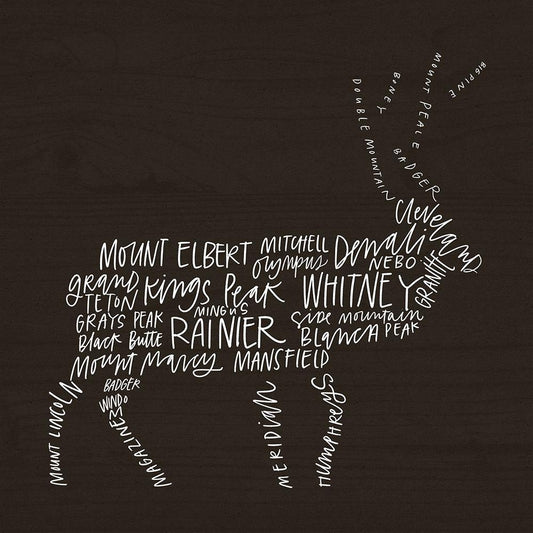 BIG PINE
MOUNT PEALE
BONEY
DOUBLE MOUNTAIN
BADGER
Cleveland
MOUNT ELBERT
MITCHELL
Denali
Olympus
NEBO
GRANITE
Grand
TETON
Kings Peak
WHITNEY
MINGUS
GRAYS PEAK
RAINIER
Side Mountain
Black Butte
Blanca PEAK
Mount Marcy
MANSFIELD
BADGER
MOUNT LINCOLN
MAGAZINE
MERIDIAN
HUMPHREYS